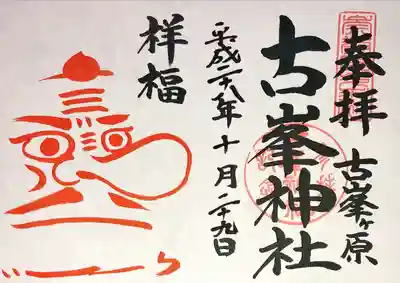 奉拝
古峯ヶ原
古峯神社
平成二十八年十月二十九日
祥福